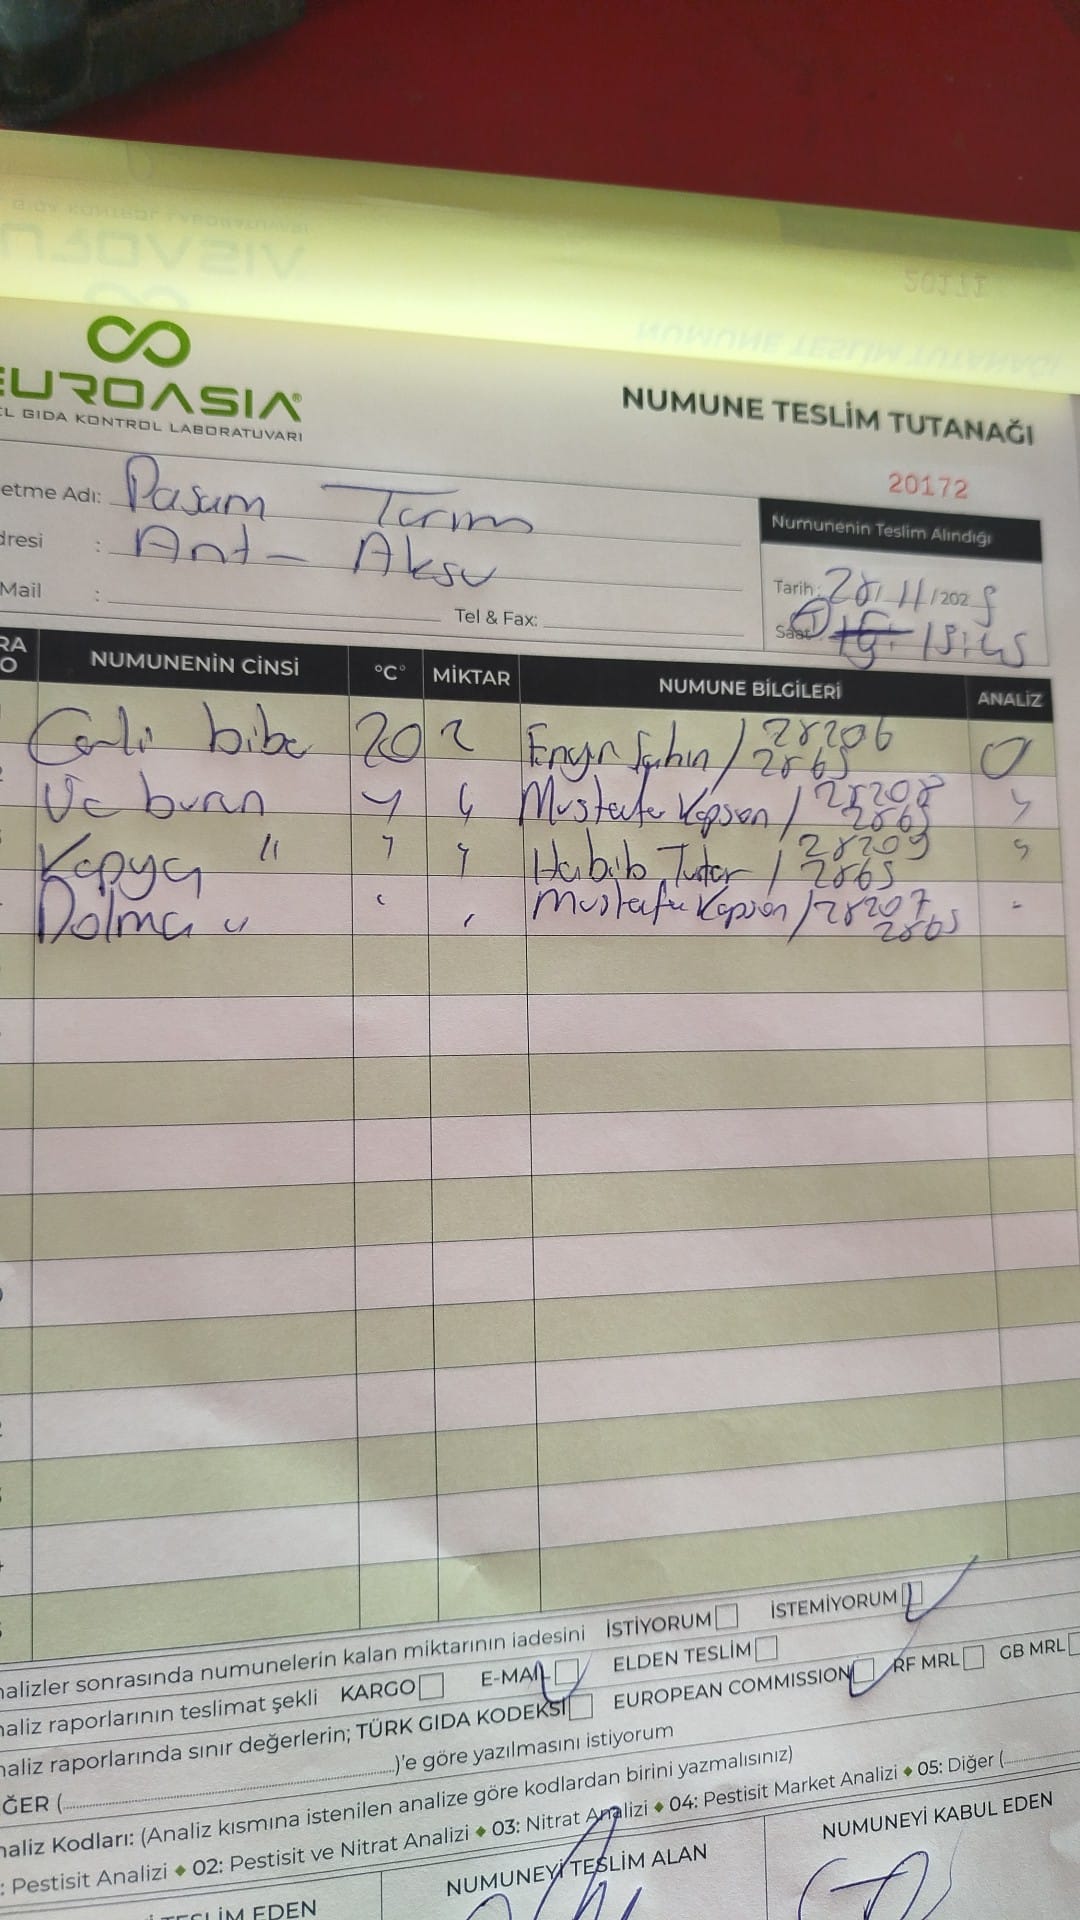 EUROASIA®
EL GIDA KONTROL LABORATUVARI
NUMUNE TESLİM TUTANAĞI
20172
etme Adı: Paşam Tarım
dresi : Ant - Aksu
Mail :
Tel & Fax:
Numunenin Teslim Alındığı
Tarih: 28/11/2025
Saat: 15:45
RA
O
NUMUNENİN CİNSİ °C° MİKTAR NUMUNE BİLGİLERİ ANALİZ
Çarli biber 20 2 Engin Şahin / 28206 2865
Üç burun " " Mustafa Kapson / 28208 2865 "
Kapya " " " Habib Tutar / 28209 2865 "
Dolma " " " Mustafa Kapson / 28207 2865 "
nalizler sonrasında numunelerin kalan miktarının iadesini İSTİYORUM İSTEMİYORUM
naliz raporlarının teslimat şekli KARGO E-MAİL ELDEN TESLİM
naliz raporlarında sınır değerlerin; TÜRK GIDA KODEKSİ EUROPEAN COMMISSION RF MRL GB MRL
ĞER (........)'e göre yazılmasını istiyorum
naliz Kodları: (Analiz kısmına istenilen analize göre kodlardan birini yazmalısınız)
: Pestisit Analizi ♦ 02: Pestisit ve Nitrat Analizi ♦ 03: Nitrat Analizi ♦ 04: Pestisit Market Analizi ♦ 05: Diğer (........
İ TESLİM EDEN
NUMUNEYİ TESLİM ALAN
NUMUNEYİ KABUL EDEN